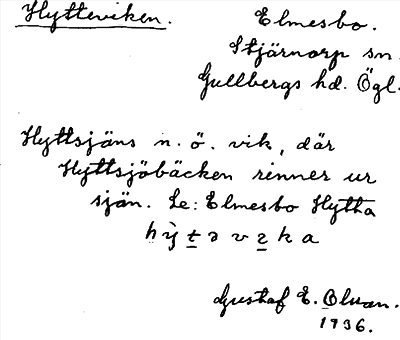 Hytteviken.
Elmesbo.
Stjärnorp sn.
Gullbergs hd. Ögl.
Hyttsjäns n. ö. vik, där
Hyttsjöbäcken rinner ur
sjän. Se: Elmesbo Hytta
Gustaf E. Olsson.
1936.